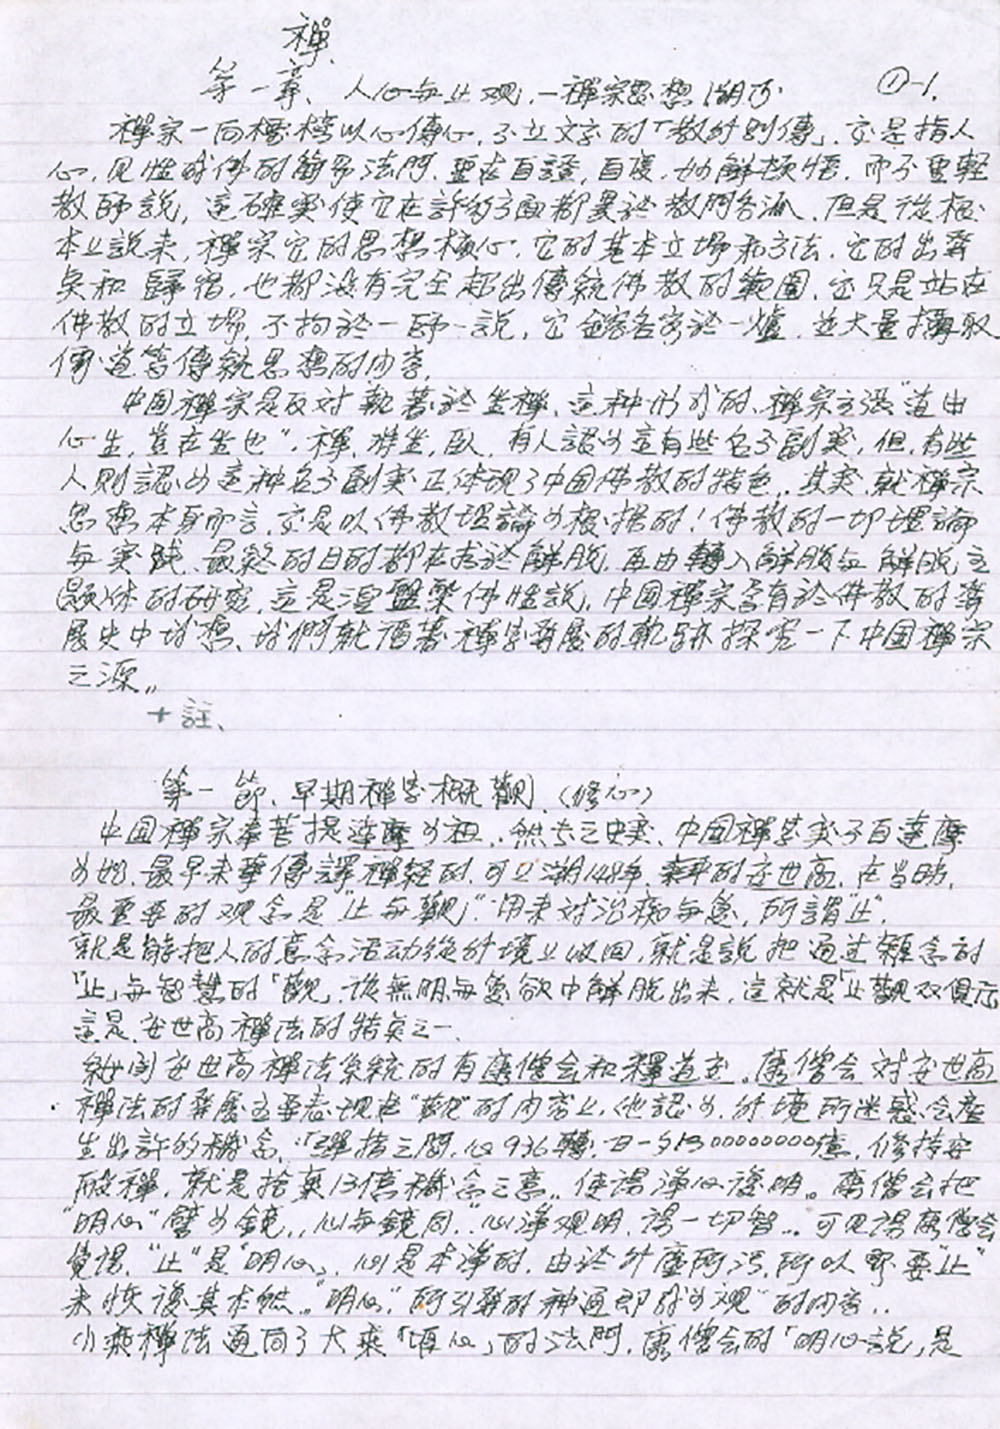 禪
第一章、人心与止观,一禪宗思想溯
①-1.
禪宗一向標榜以心傳心,不立文字的「教外別傳」,它是指人
心,见性成佛的簡易法門,重在自證,自度,妙解頓悟,而不重輕
教師說,這確实使它在許多方面都異於教門各派,但是從根
本上說来,禪宗它的思想核心,它的基本立場和方法,它的出發
点和歸宿,也都没有完全超出傳統佛教的範圍,它只是站在
佛教的立場,不拘於一師一說,它鎔各家於一爐,並大量攝取
儒道等傳統思想的内容,
中国禪宗是反对執著於坐禪,这种形式的,禪宗主張"道由
心生,豈在坐也",禪,非坐,臥,有人認为這有些名不副实,但,有些
人則認为這种名不副实正体现了中国佛教的特色,其实,就禪宗
思想本身而言,它是以佛教理論为根据的!佛教的一切理論
与实践,最終的目的都在求於解脱,再由轉入解脱与解脱主
題体的研究,這是涅盤槃佛性說,中国禪宗含有於佛教的發
展史中 我們就循著禪学發展的軌跡探究一下中国禪宗
之源,,
十註、
第一節、早期禪学概觀,(修心)
中国禪宗奉菩提達摩为祖,然去之史实,中国禪学实不自達摩
为始,最早来華傳譯禪經的,可上溯148年,来華的安世高,在当时,
最重要的观念是"止与觀"用来对治痴与爱,所謂"止",
就是能把人的意念活动從外境上收回,就是說把通过雜念的
「止」与智慧的「觀」,從無明与爱欲中解脱出来,這就是「止觀双俱
這是,安世高禪法的特点之一、
安世高禪法系統的有康僧会和釋道安。康僧会对安世高
禪法的發展主要表现在"觀"的内容上,他認为,外境所迷惑,会產
生出許多穢念,「彈指之間,心936轉,一日一夕13000000000億,修持安
般禪,就是捨棄13億穢念之意,,使得淨心復明。康僧会把
"明心"譬为鏡,,心与鏡同,"心淨观明,得一切智,,可见得康僧会
覺得,"止"是"明心」,心是本淨的,由於外塵所污,所以 要"止"
来恢復其本然,"明心"所引發的神通即成为观"的内容,,
小乘禪法通向了大乘「 心」的法門,康僧会的「明心說」是